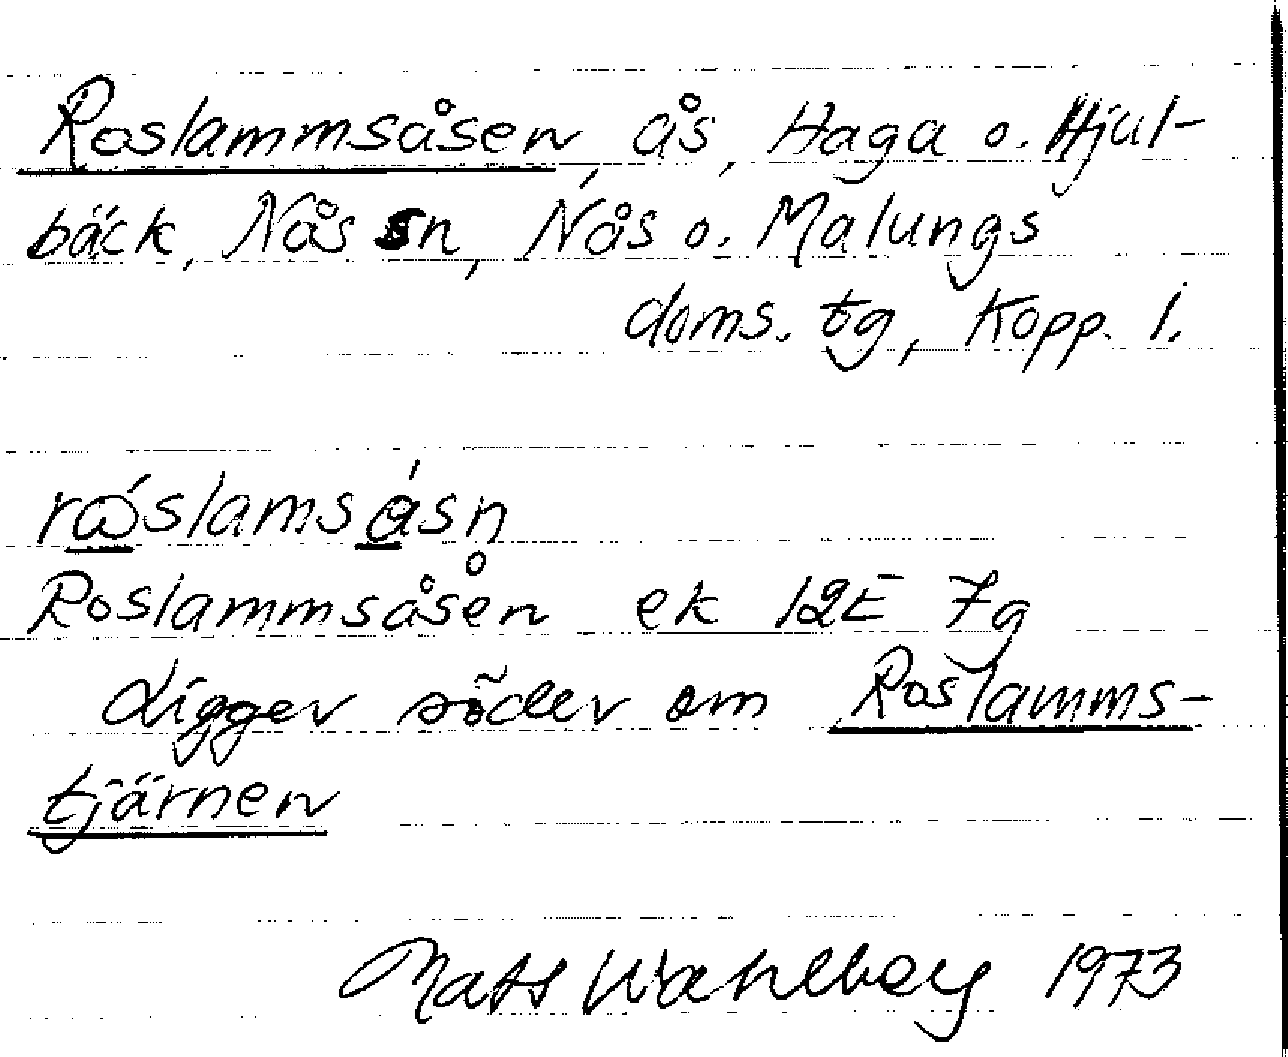 Roslammsåsen, ås, Haga o. Hjul-
bäck, Nås sn, Nås o. Malungs
doms. tg, Kopp. l.
rώslamsɑ́sn
Roslammsåsen ek 12E 7g
Ligger söder om Roslamms-
tjärnen
Mats Wahlberg 1973